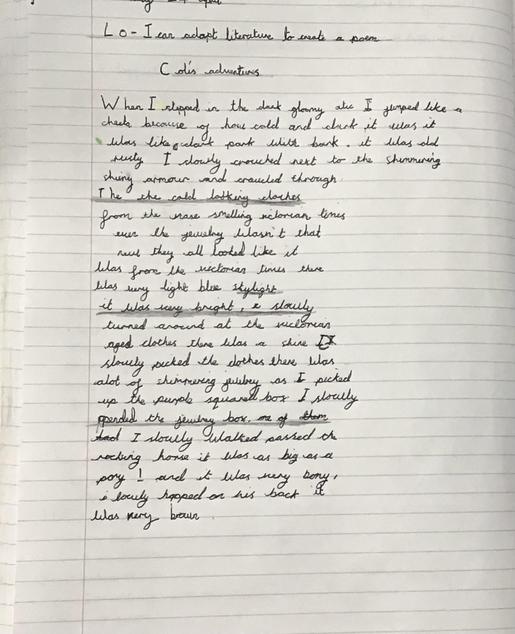 Lo - I can adapt literature to create a poem
Col's adventures
When I slipped in the dark gloomy atic I jumped like a
check because of how cold and dark it was it
was like a dark park with bark. it was old
rusty I slowly crouched next to the shimmering
shiny armour and crawled through.
The the cold looking clothes
from the nase smelling victorian times
even the jewelry wasn't that
new they all looked like it
was from the victorian times there
was very light blue skylight
it was very bright, I slowly
turned around at the victorian
aged clothes there was a shine I
slowly picked the clothes there was
alot of shimmering as I picked
up the purple square box I slowly
opended the jewelry box. one of them
had I slowly walked passed the
rocking horse it was as big as a
pony ! and it was very bony,
i slowly hopped on his back it
was very brown